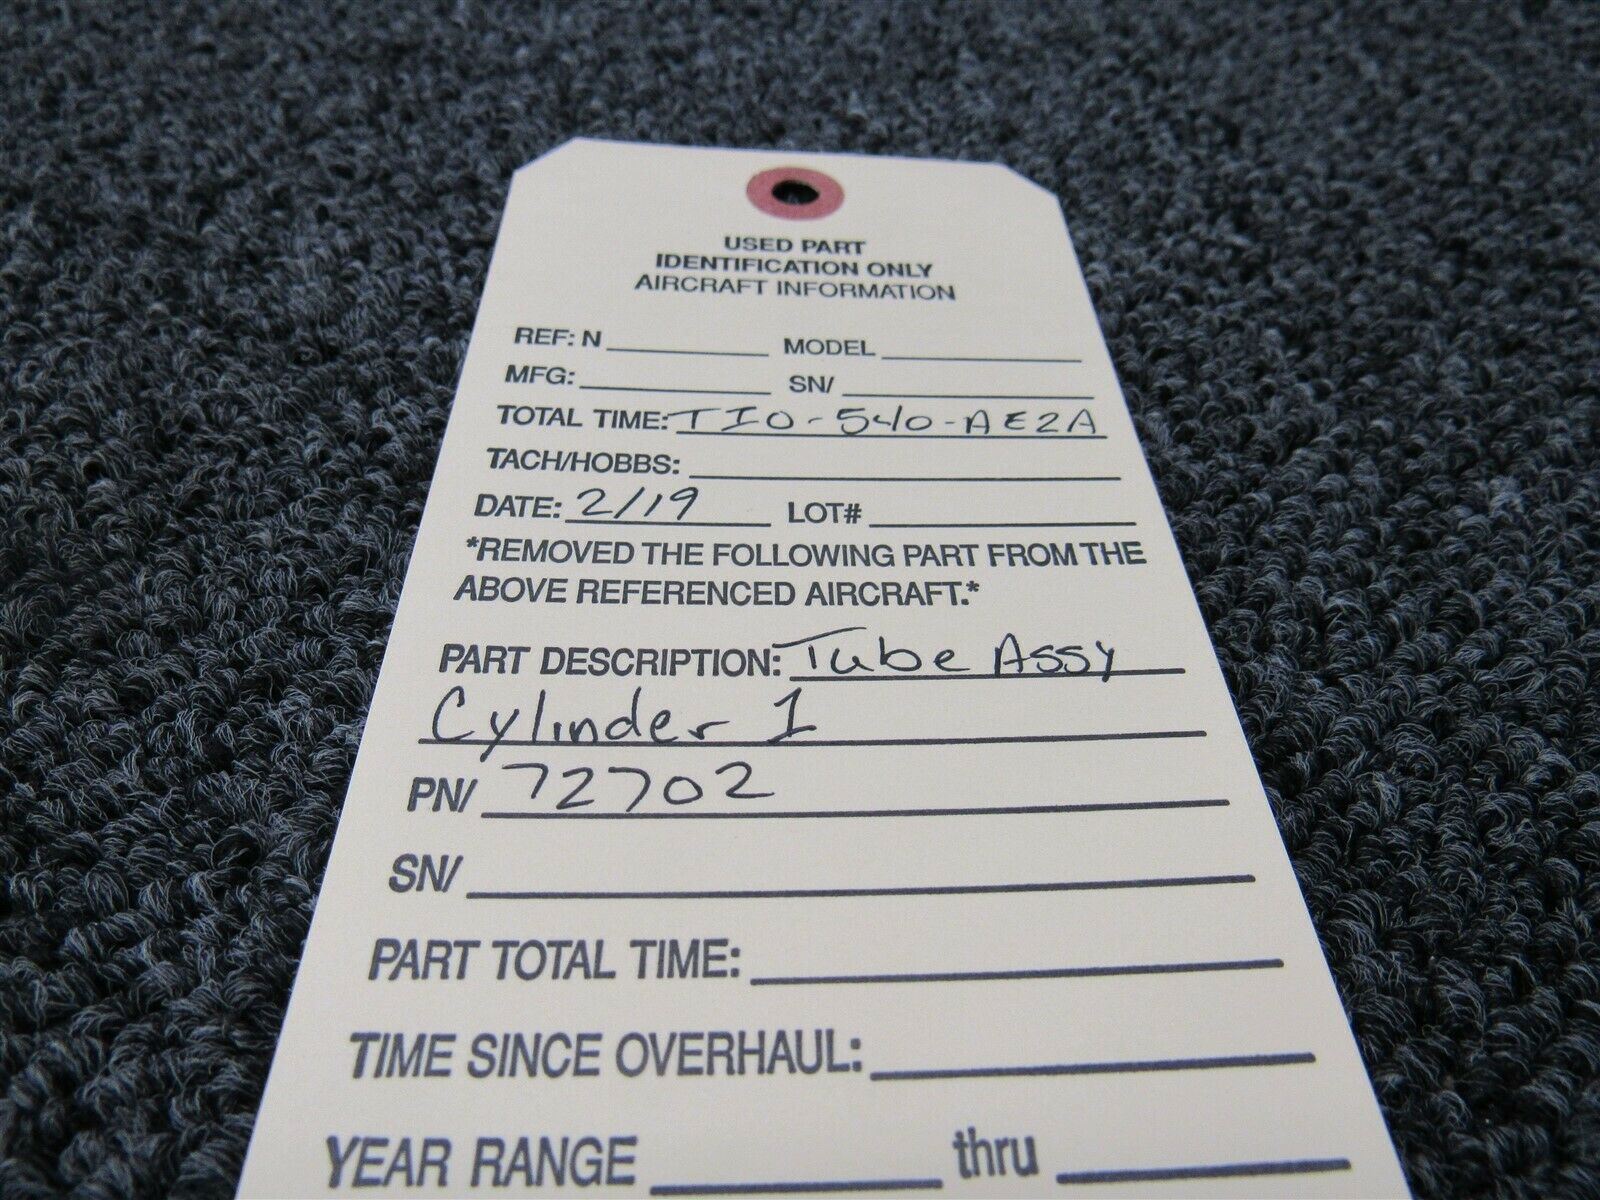 USED PART
IDENTIFICATION ONLY
AIRCRAFT INFORMATION
REF: N MODEL
MFG: SN/
TOTAL TIME: TIO-540-AE2A
TACH/HOBBS:
DATE: 2/19 LOT#
*REMOVED THE FOLLOWING PART FROM THE
ABOVE REFERENCED AIRCRAFT.*
PART DESCRIPTION: Tube Assy
Cylinder 1
PN/ 72702
SN/
PART TOTAL TIME:
TIME SINCE OVERHAUL:
YEAR RANGE thru